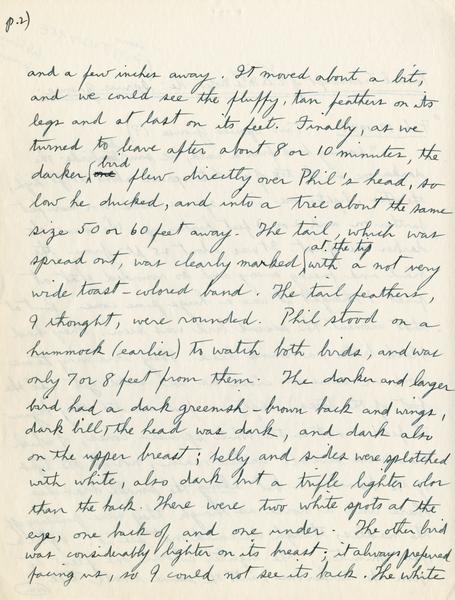 p. 2)
and a few inches away. It moved about a bit,
and we could see the fluffy, tan feathers on its
legs and at last on its feet. Finally, as we
turned to leave after about 8 or 10 minutes, the
bird
darker one flew directly over Phil's head, so
low he ducked, and into a tree about the same
size 50 or 60 feet away. The tail, which was
at the tip
spread out, was clearly marked with a not very
wide toast-colored band. The tail feathers,
I thought, were rounded. Phil stood on a
hummock (earlier) to watch both birds, and was
only 7 or 8 feet from them. The darker and larger
bird had a dark greenish-brown back and wings,
dark bill, the head was dark, and dark also
on the upper breast; belly and sides were splotched
with white, also dark but a trifle lighter color
than the back. There were two white spots at the
eye, one back of and one under. The other bird
was considerably lighter on its breast; it always preferred
facing us, so I could not see its back. The white